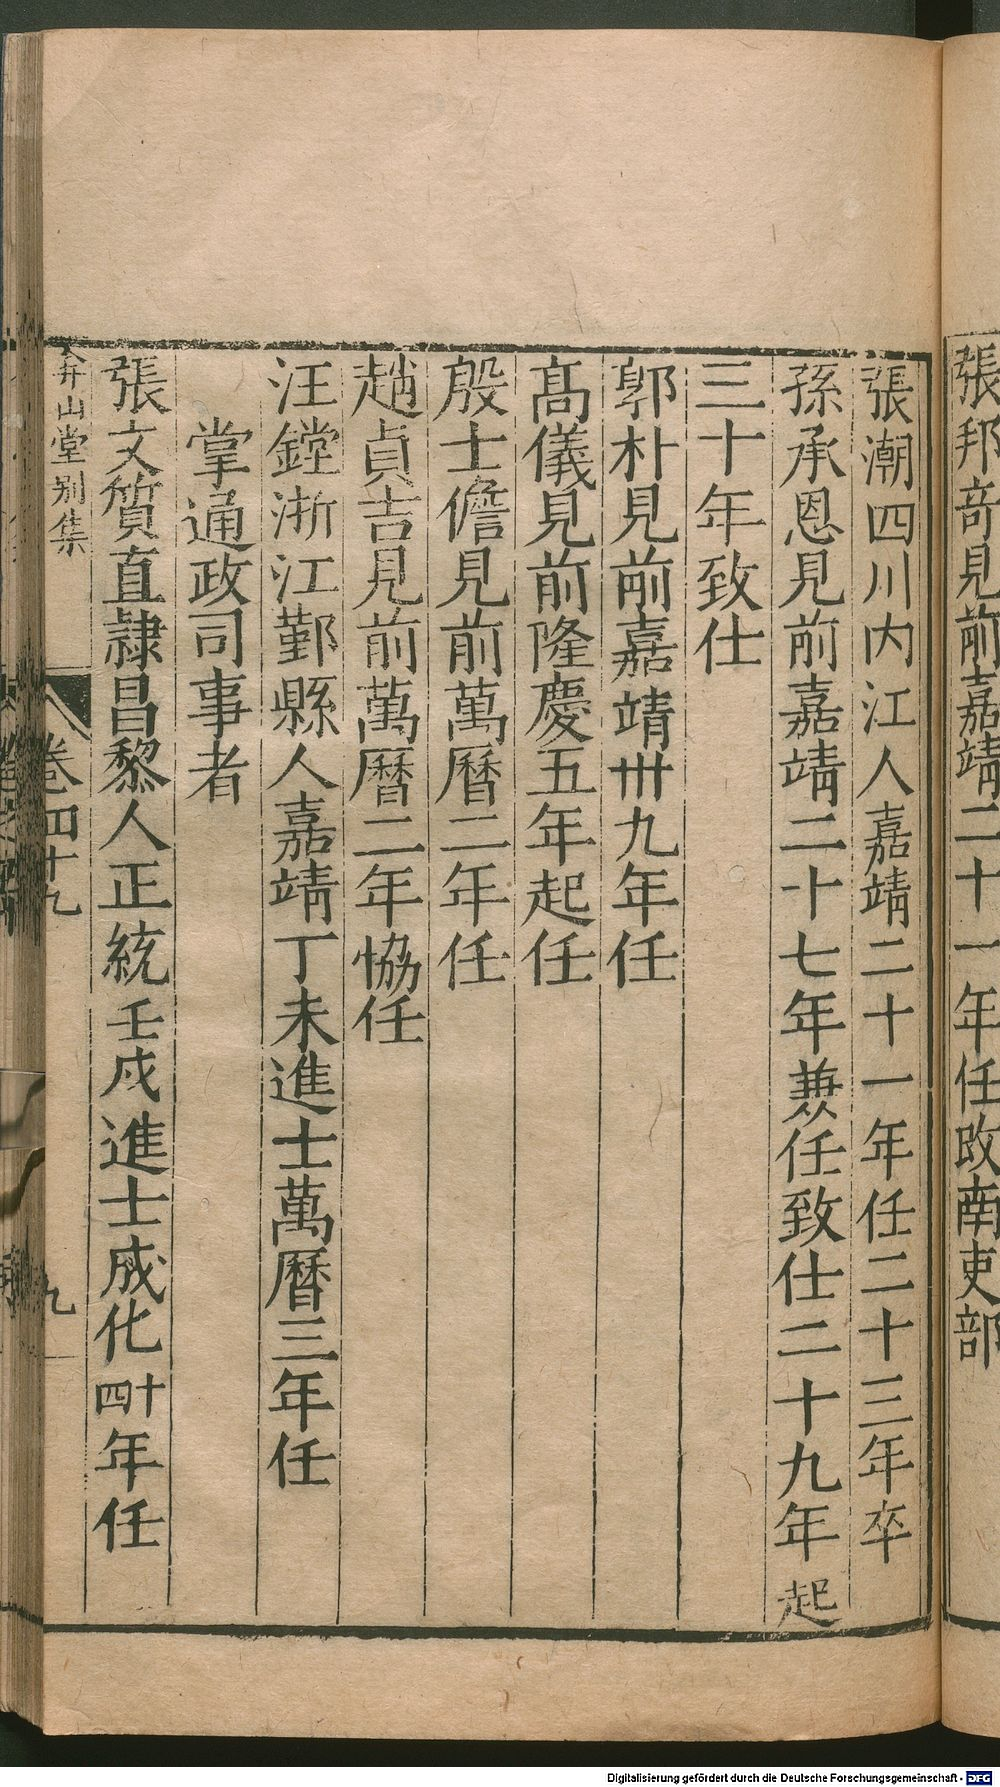 張邦奇見前嘉靖二十一年任改南吏部
張潮四川内江人嘉靖二十一年任二十三年卒
孫承恩見前嘉靖二十七年兼任致仕二十九年起
三十年致仕
郭朴見前嘉靖卅九年任
髙儀見前隆慶五年起任
殷士儋見前萬曆二年任
趙貞吉見前萬曆二年協任
汪鏜浙江鄞縣人嘉靖丁未進士萬曆三年任
掌通政司事者
張文質直隷昌黎人正統壬戍進士成化十四年任
弇山堂别集
卷四十九
九
Digitalisierung gefördert durch die Deutsche Forschungsgemeinschaft - DFG